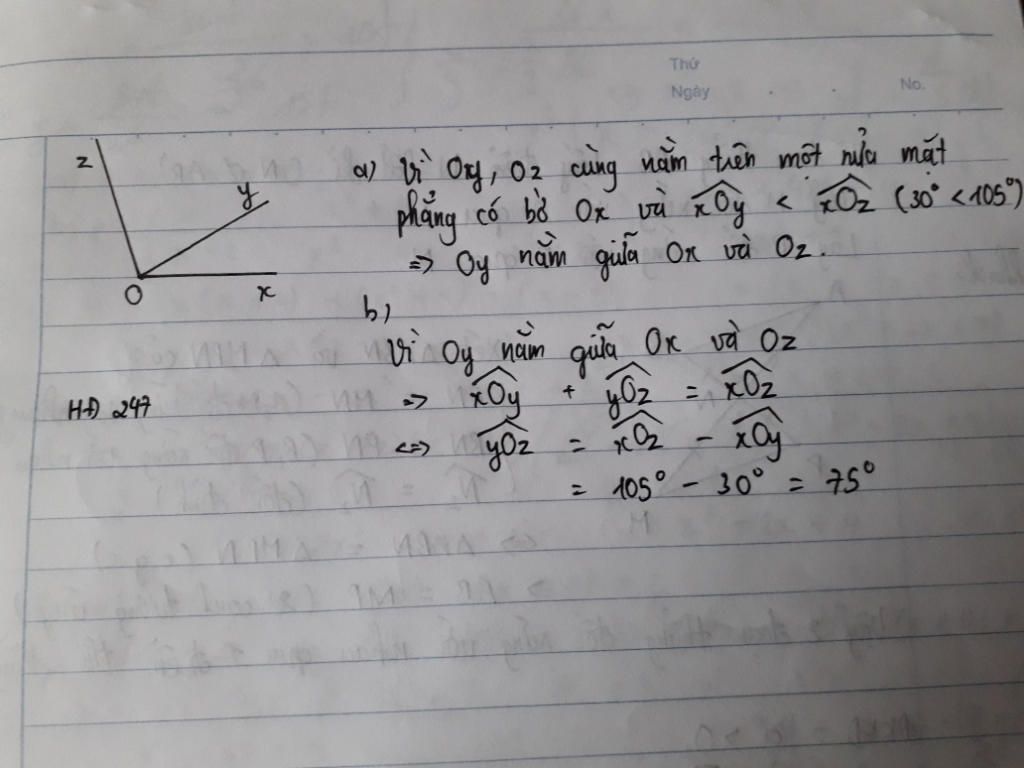 Thứ
Ngày . . No.
z
y
O
x
a) Vì Oxy, Oz cùng nằm trên một nửa mặt
phẳng có bờ Ox và xOy < xOz (30° < 105°)
=> Oy nằm giữa Ox và Oz.
b,
Vì Oy nằm giữa Ox và Oz
HĐ 247
=> xOy + yOz = xOz
<=> yOz = xOz - xOy
= 105° - 30° = 75°